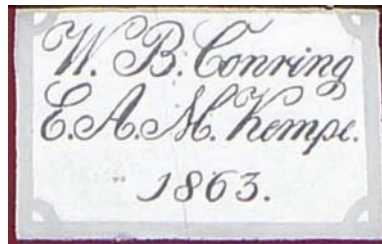 W. B. Conring
E. A. M. Kempe.
1863.